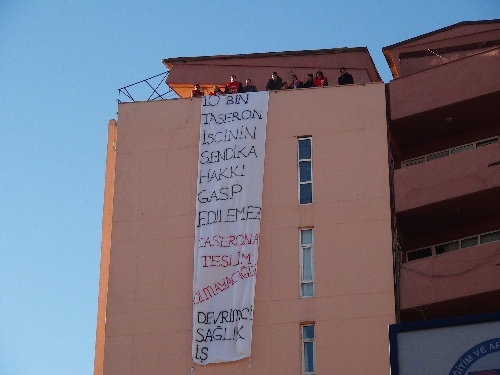 10 BİN
TAŞERON
İŞÇİNİN
SENDİKA
HAKKI
GASP
EDİLEMEZ
TAŞERONA
TESLİM
OLMAYACAĞIZ
DEVRİMCİ
SAĞLIK
İŞ
EĞİTİM VE AR